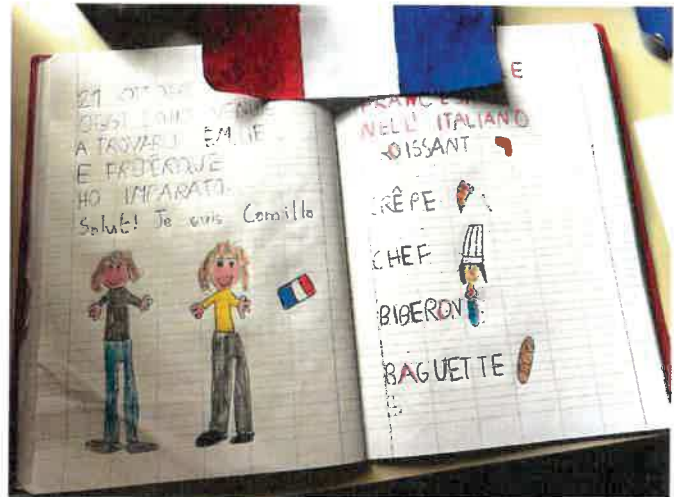 21 OTTOBRE
OGGI SONO VENUTE
A TROVARCI EMILIE
E FREDERIQUE
HO IMPARATO
Salut! Je suis Camillo
E
FRANCESI
NELL' ITALIANO
OISSANT
CRÊPE
CHEF
BIBERON
BAGUETTE
E